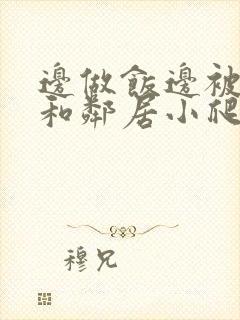 邊做飯邊被
和鄰居小爬
穆兄